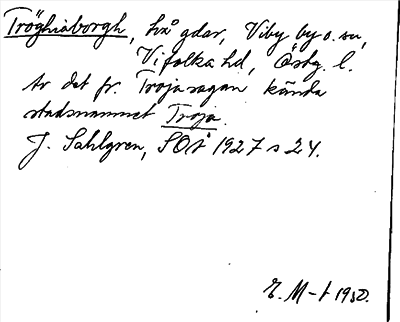 Tröghiaborgh, två gdar, Viby by o. sn,
Vifolka hd, Östg. l.
Är det fr. Trojasagan kända
stadsnamnet Troja.
J. Sahlgren, SOÅ 1927 s 24.
E. M-t 1930.